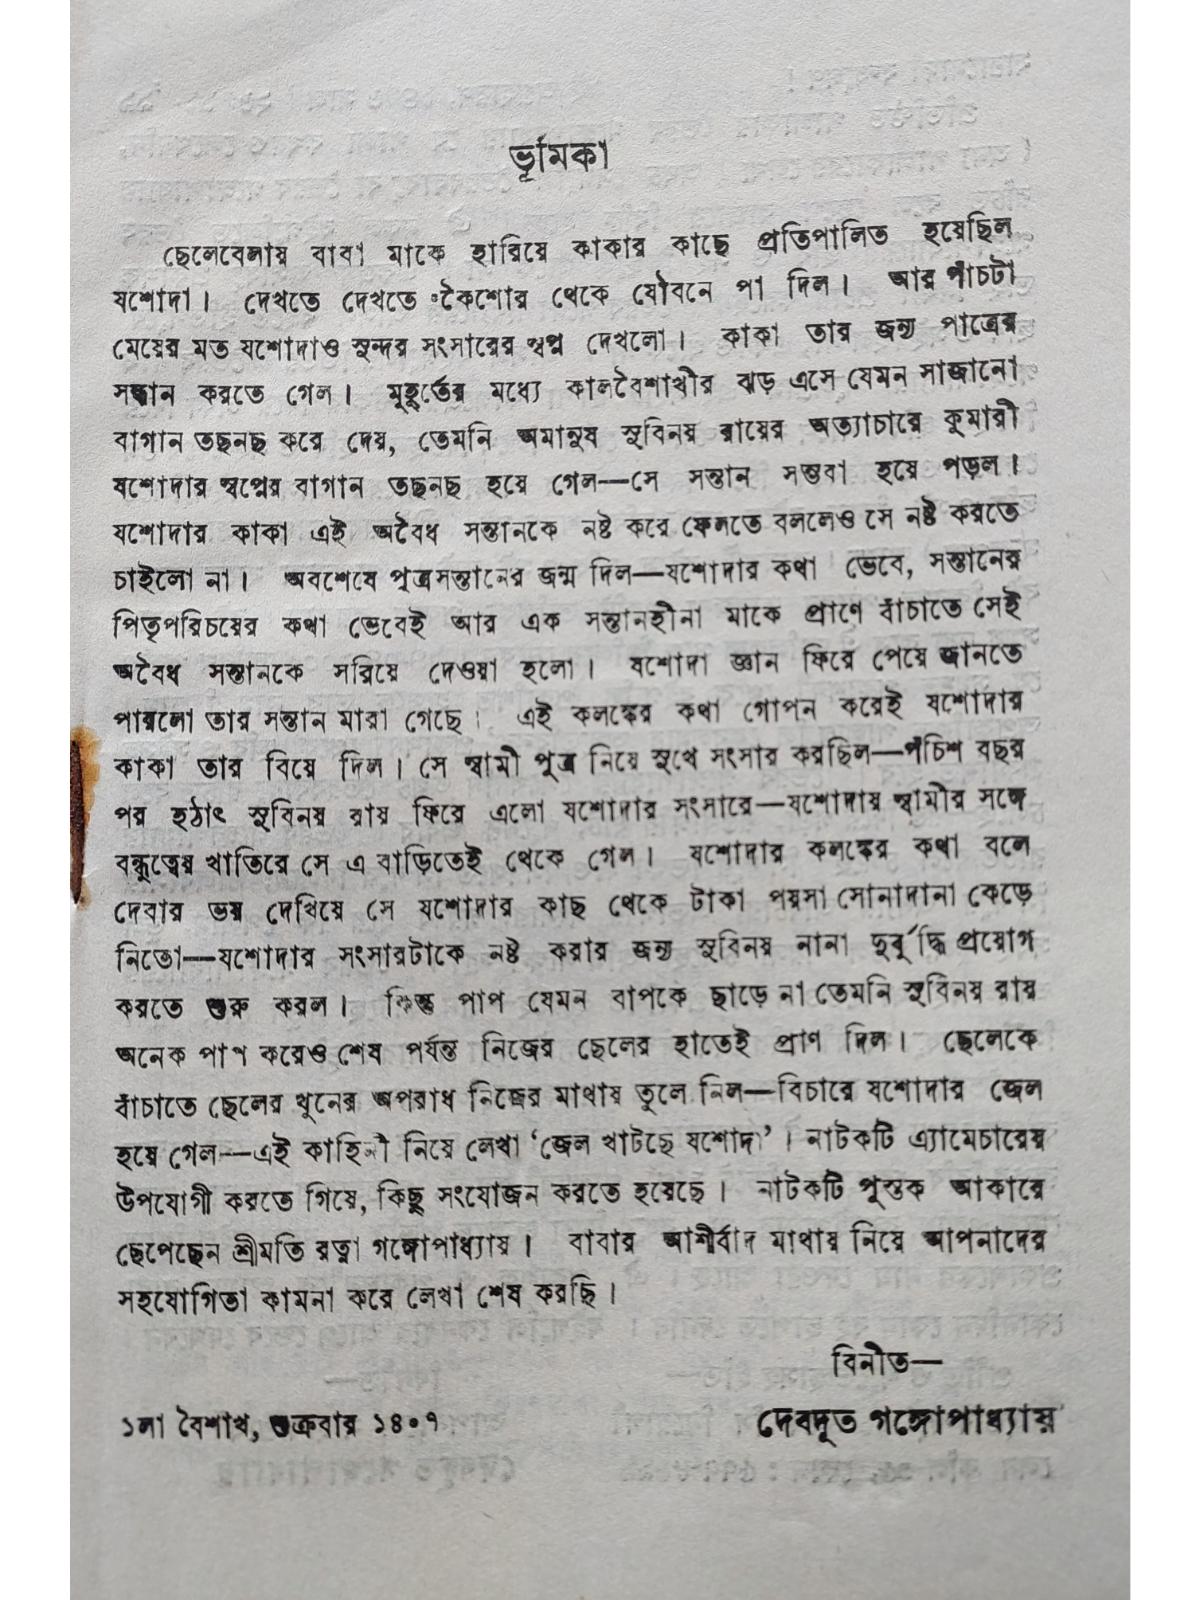 ভূমিকা
ছেলেবেলায় বাবা মাকে হারিয়ে কাকার কাছে প্রতিপালিত হয়েছিল
যশোদা। দেখতে দেখতে কৈশোর থেকে যৌবনে পা দিল। আর পাঁচটা
মেয়ের মত যশোদাও সুন্দর সংসারের স্বপ্ন দেখলো। কাকা তার জন্য পাত্রের
সন্ধান করতে গেল। মুহূর্তের মধ্যে কালবৈশাখীর ঝড় এসে যেমন সাজানো
বাগান তছনছ করে দেয়, তেমনি অমানুষ সুবিনয় রায়ের অত্যাচারে কুমারী
যশোদার স্বপ্নের বাগান তছনছ হয়ে গেল—সে সন্তান সম্ভবা হয়ে পড়ল।
যশোদার কাকা এই অবৈধ সন্তানকে নষ্ট করে ফেলতে বললেও সে নষ্ট করতে
চাইলো না। অবশেষে পুত্রসন্তানের জন্ম দিল—যশোদার কথা ভেবে, সন্তানের
পিতৃপরিচয়ের কথা ভেবেই আর এক সন্তানহীনা মাকে প্রাণে বাঁচাতে সেই
অবৈধ সন্তানকে সরিয়ে দেওয়া হলো। যশোদা জ্ঞান ফিরে পেয়ে জানতে
পারলো তার সন্তান মারা গেছে। এই কলঙ্কের কথা গোপন করেই যশোদার
কাকা তার বিয়ে দিল। সে স্বামী পুত্র নিয়ে সুখে সংসার করছিল—পঁচিশ বছর
পর হঠাৎ সুবিনয় রায় ফিরে এলো যশোদার সংসারে—যশোদায় স্বামীর সঙ্গে
বন্ধুত্বের খাতিরে সে এ বাড়িতেই থেকে গেল। যশোদার কলঙ্কের কথা বলে
দেবার ভয় দেখিয়ে সে যশোদার কাছ থেকে টাকা পয়সা সোনাদানা কেড়ে
নিতো—যশোদার সংসারটাকে নষ্ট করার জন্য সুবিনয় নানা দুর্বুদ্ধি প্রয়োগ
করতে শুরু করল। কিন্তু পাপ যেমন বাপকে ছাড়ে না তেমনি সুবিনয় রায়
অনেক পাপ করেও শেষ পর্যন্ত নিজের ছেলের হাতেই প্রাণ দিল। ছেলেকে
বাঁচাতে ছেলের খুনের অপরাধ নিজের মাথায় তুলে নিল—বিচারে যশোদার জেল
হয়ে গেল—এই কাহিনী নিয়ে লেখা ‘জেল খাটছে যশোদা’। নাটকটি এ্যামেচারের
উপযোগী করতে গিয়ে, কিছু সংযোজন করতে হয়েছে। নাটকটি পুস্তক আকারে
ছেপেছেন শ্রীমতি রত্না গঙ্গোপাধ্যায়। বাবার আশীর্বাদ মাথায় নিয়ে আপনাদের
সহযোগিতা কামনা করে লেখা শেষ করছি।
বিনীত—
১লা বৈশাখ, শুক্রবার ১৪০৭ দেবদূত গঙ্গোপাধ্যায়